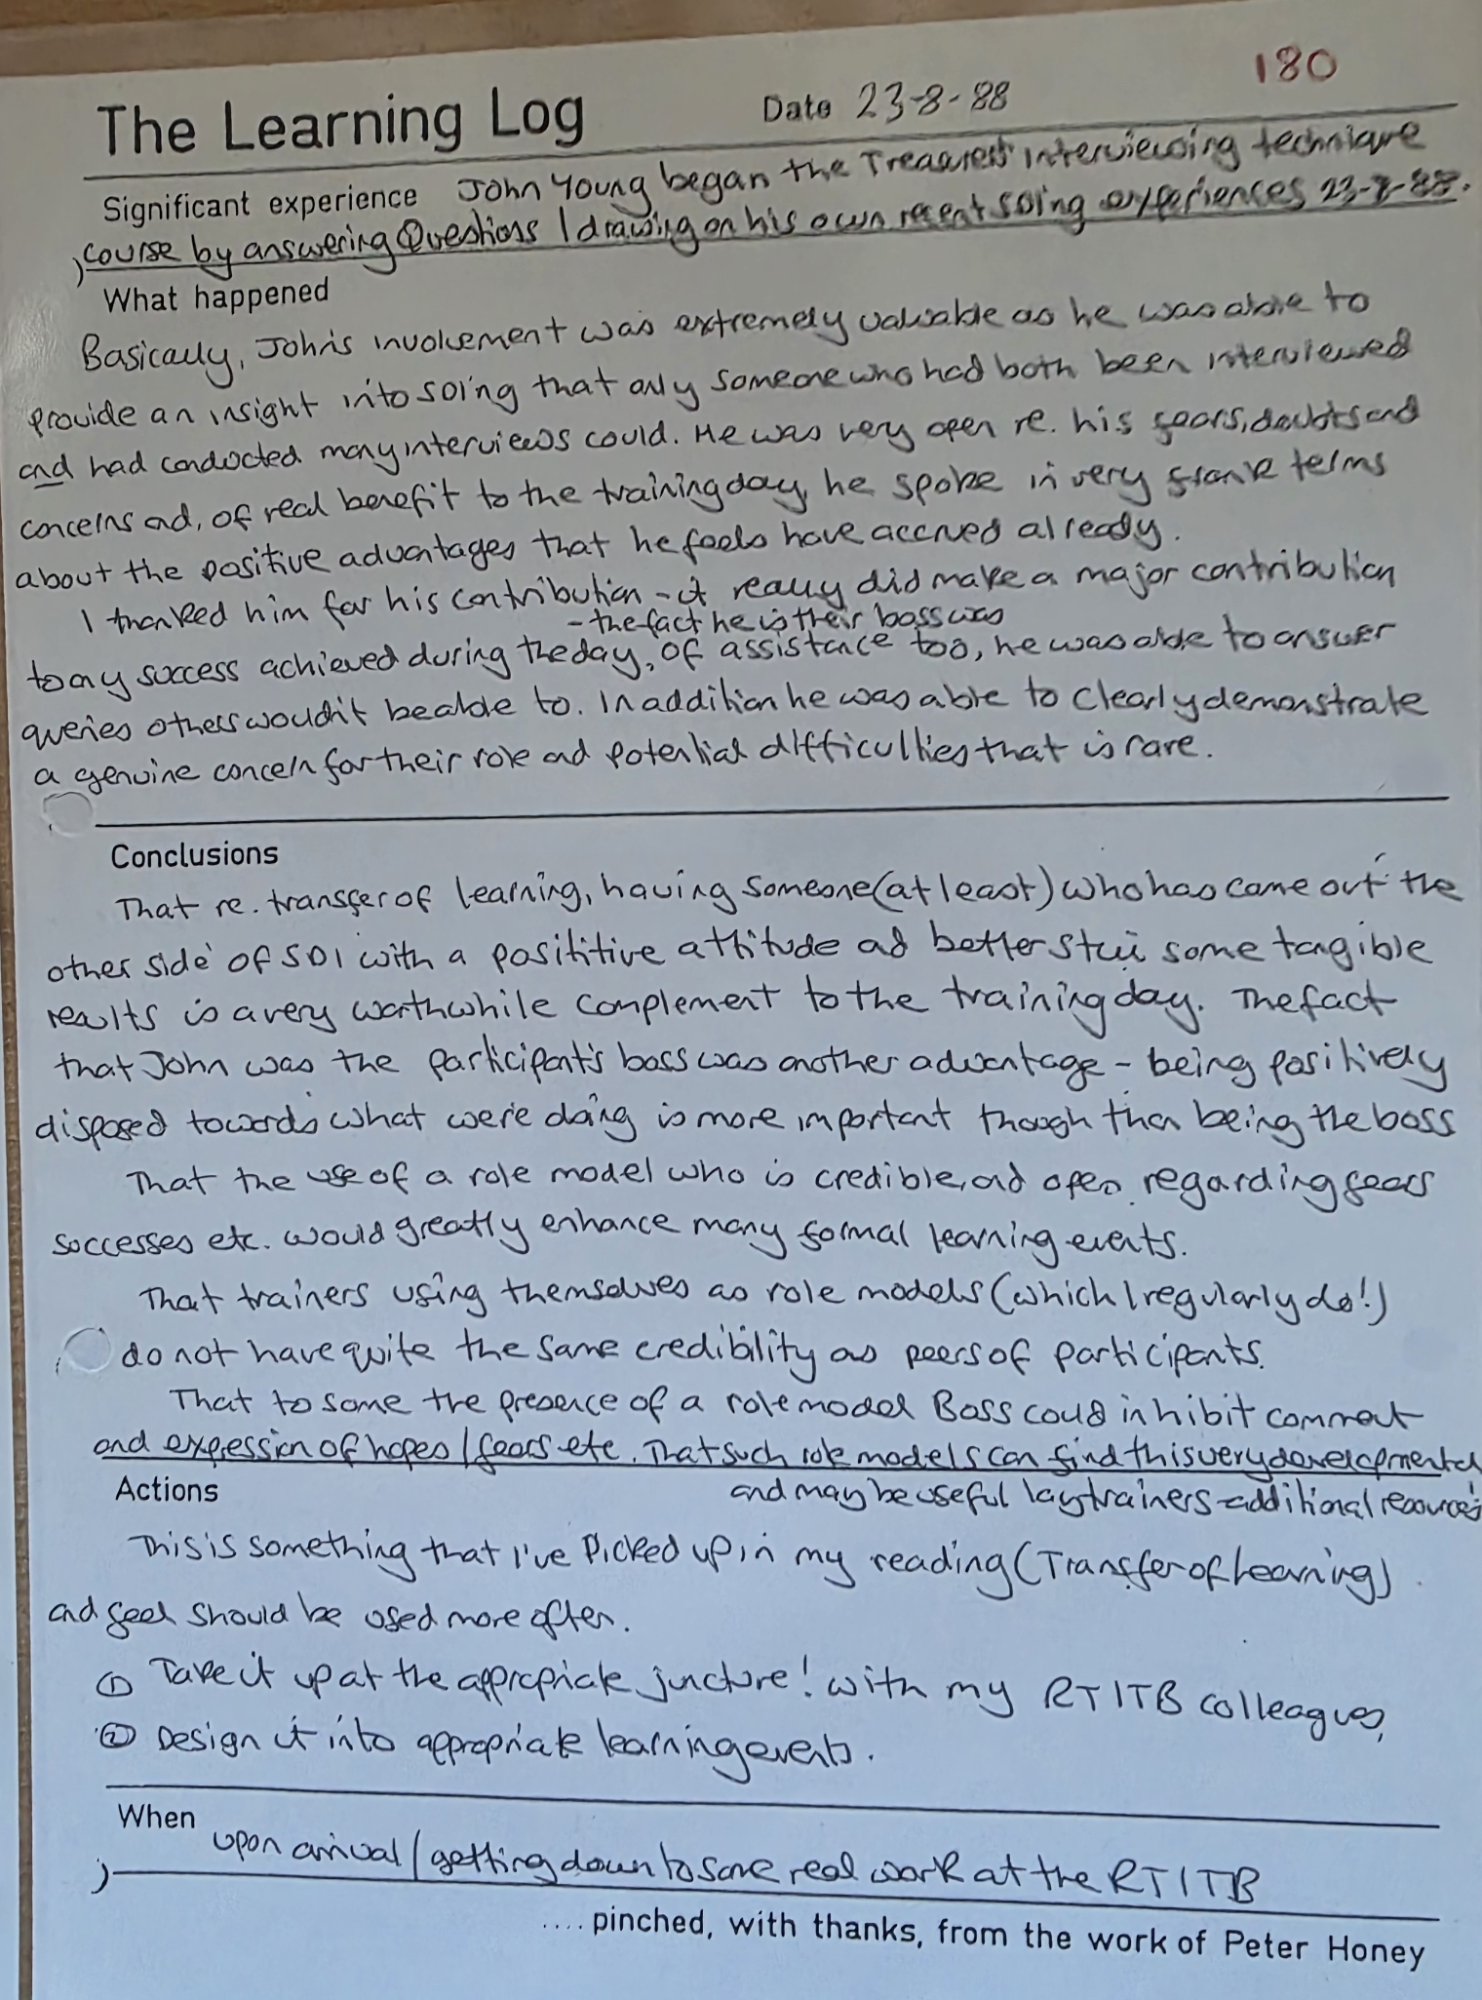 180
The Learning Log Date 23-8-88
Significant experience John Young began the Treasurers' interviewing technique
course by answering Questions / drawing on his own recent SDIing experiences 23-8-88.
What happened
Basically, John's involvement was extremely valuable as he was able to
provide an insight into SDIing that only someone who had both been interviewed
and had conducted many interviews could. He was very open re. his fears, doubts and
concerns and, of real benefit to the training day, he spoke in very frank terms
about the positive advantages that he feels have accrued already.
I thanked him for his contribution - it really did make a major contribution
- the fact he is their boss was
to my success achieved during the day, of assistance too, he was able to answer
queries others wouldn't be able to. In addition he was able to clearly demonstrate
a genuine concern for their role and potential difficulties that is rare.
Conclusions
That re. transfer of learning, having someone (at least) who has come out the
other side of SDI with a posititive attitude and better still some tangible
results is a very worthwhile complement to the training day. The fact
that John was the participant's boss was another advantage - being positively
disposed towards what we're doing is more important though then being the boss
That the use of a role model who is credible, and open regarding fears
successes etc. would greatly enhance many formal learning events.
That trainers using themselves as role models (which I regularly do!)
do not have quite the same credibility as peers of participants.
That to some the presence of a role model Boss could inhibit comment
and expression of hopes / fears etc. That such role models can find this very developmental
Actions and may be useful lay trainers - additional resources
This is something that I've picked up in my reading (Transfer of Learning)
and feel should be used more often.
① Take it up at the appropriate juncture! with my RTITB colleagues,
② Design it into appropriate learning events.
When upon arrival / getting down to some real work at the RTITB
.... pinched, with thanks, from the work of Peter Honey